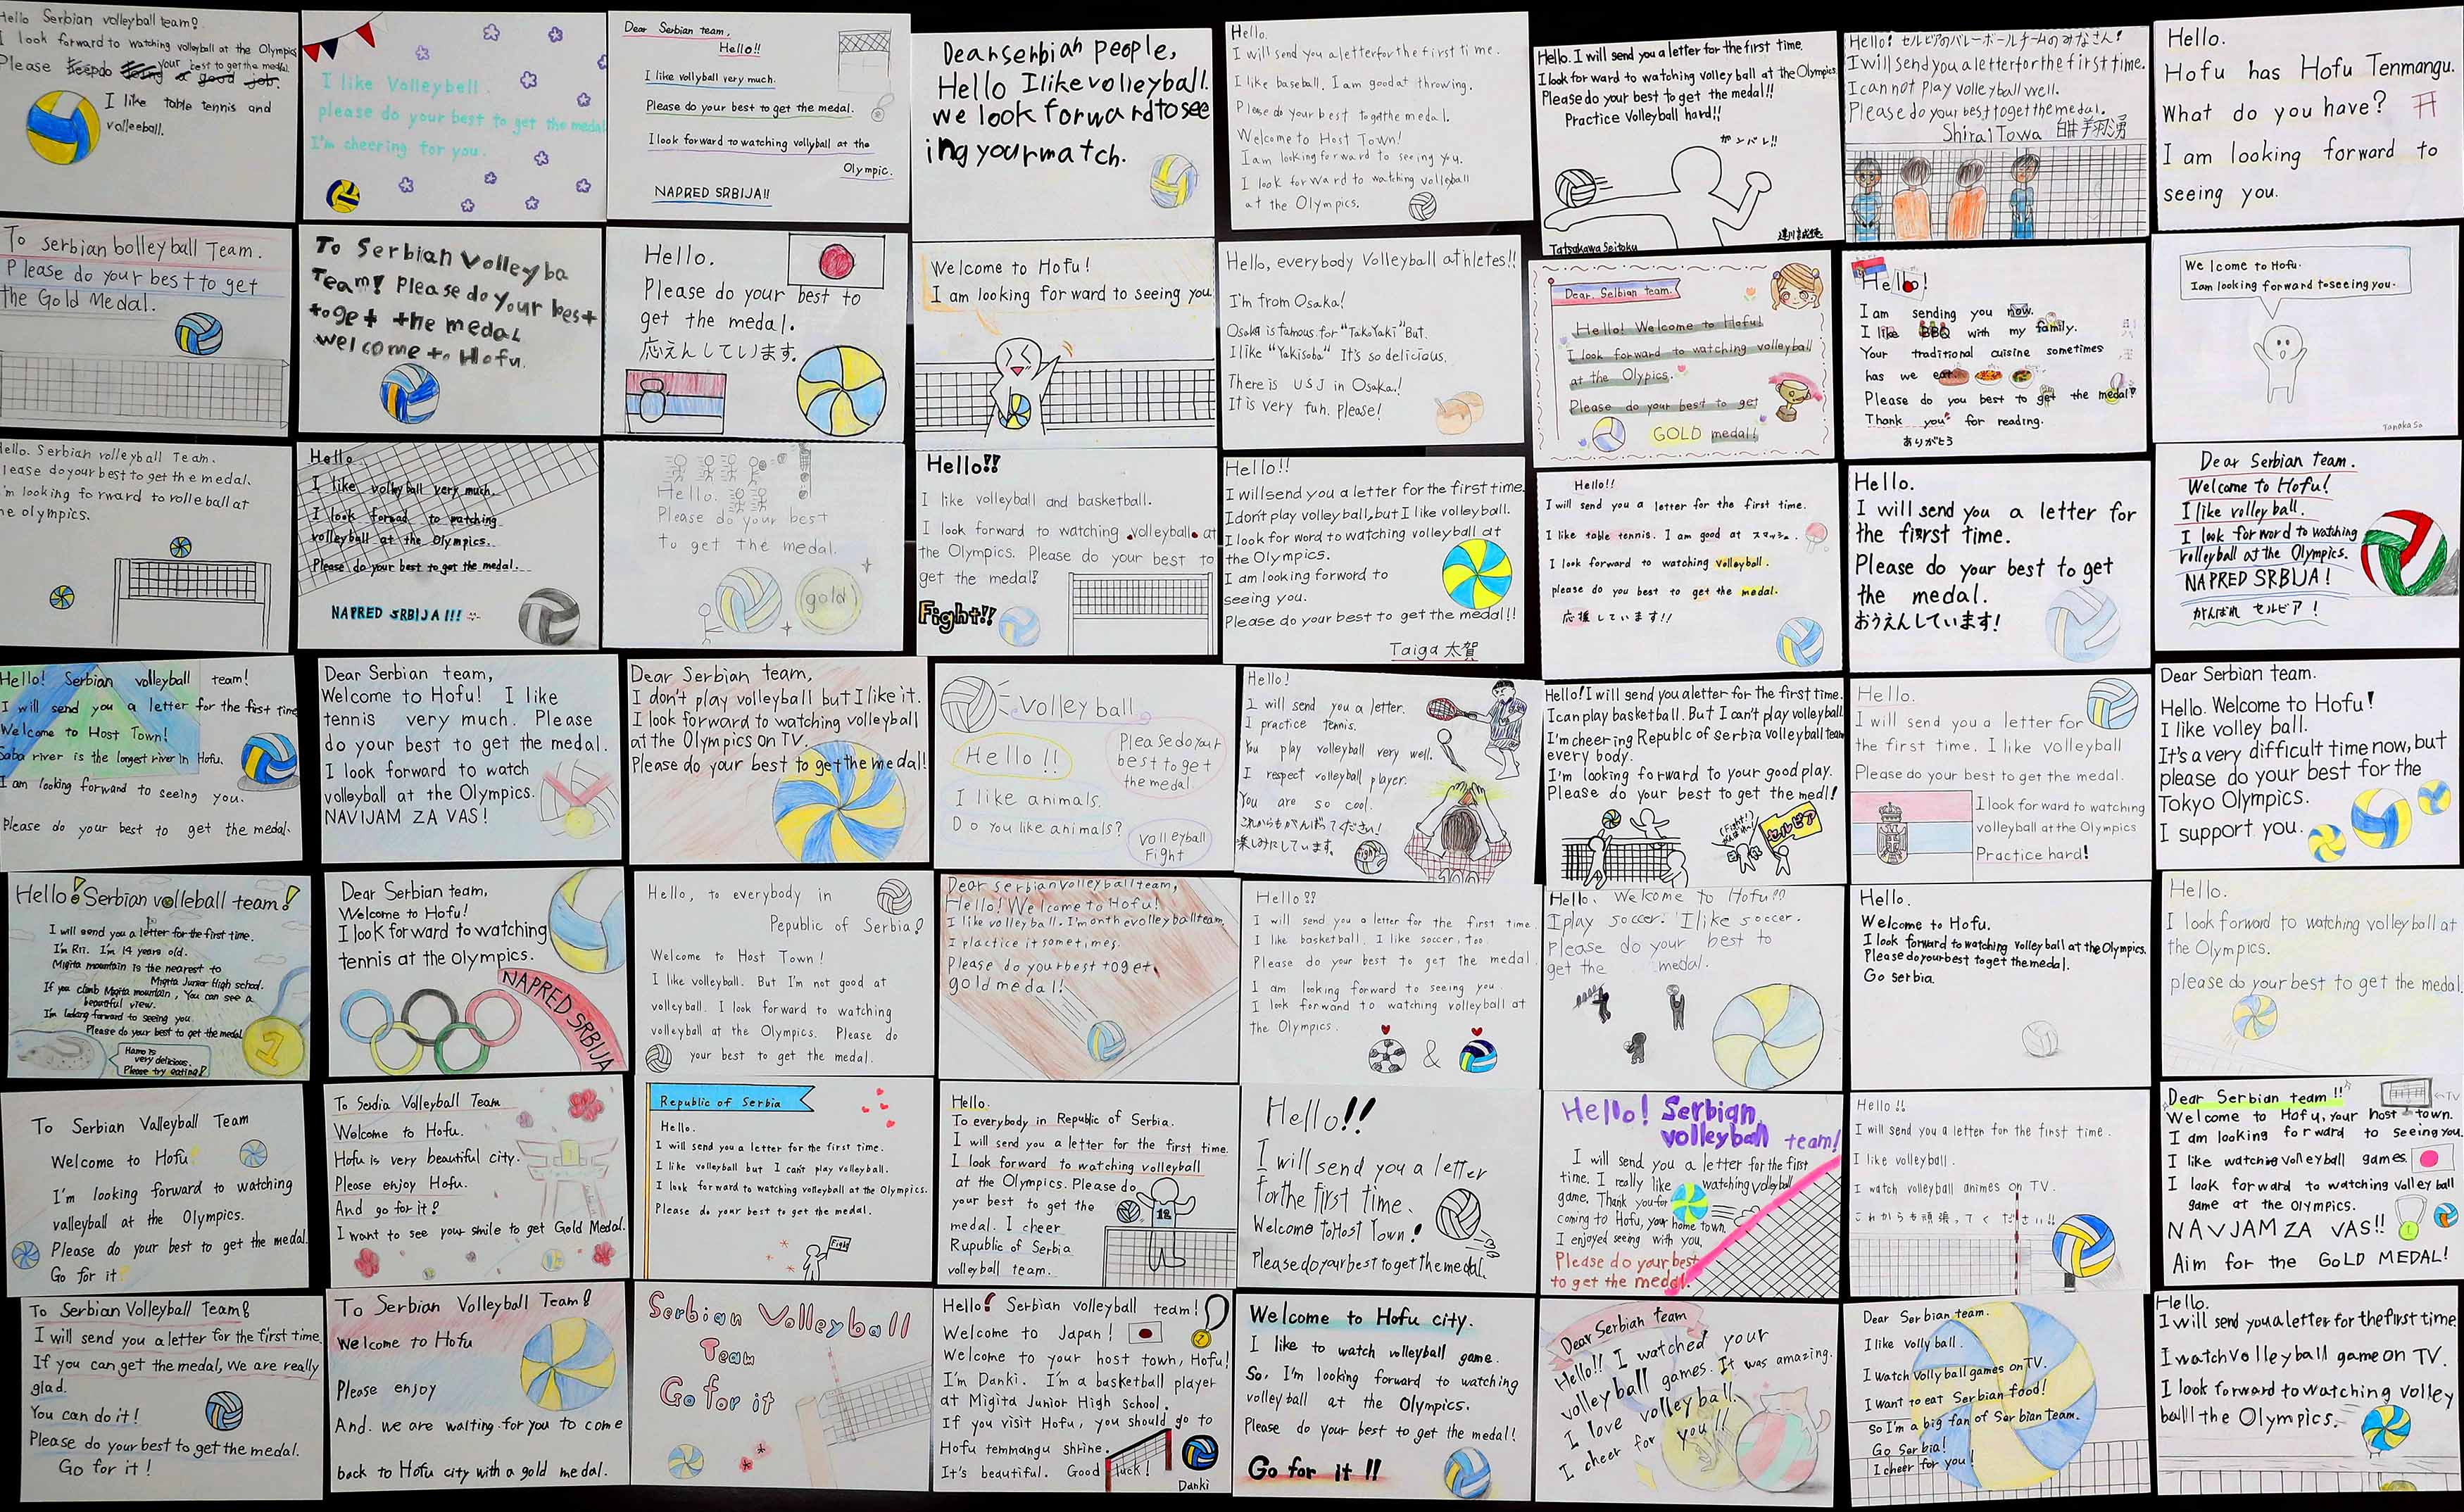 Hello Serbian volleyball team!
I look forward to watching volleyball at the Olympics
Please your best to get the medal.
I like table tennis and
valleeball.
I like Volleybell.
please do your best to get the medal
I'm cheering for you.
Dear Serbian team,
Hello!!
I like vollyball very much.
Please do your best to get the medal.
I look forward to watching vollyball at the
Olympic.
NAPRED SRBIJA!!
Dear serbian people,
Hello I like volleyball.
we look forward to see
ing your match.
Hello.
I will send you a letter for the first time.
I like baseball. I am good at throwing.
Please do your best to get the medal.
Welcome to Host Town!
I am looking forward to seeing you.
I look forward to watching volleyball
at the Olympics.
Hello. I will send you a letter for the first time.
I look for ward to watching volley ball at the Olympics.
Please do your best to get the medal!!
Practice Volleyball hard!!
ガンバレ!!
Tatsukawa Seitoku
Hello! セルビアのバレーボールチームのみなさん!
I will send you a letter for the first time.
I can not play volleyball well.
Please do your best to get the medal.
Shirai Towa 白井翔湧
Hello.
Hofu has Hofu Tenmangu.
What do you have?
I am looking forward to
seeing you.
To serbian bolleyball Team.
Please do your best to get
the Gold Medal.
To Serbian Volleyba
Team! Please do your best
to get the medal
welcome to Hofu.
Hello.
Please do your best to
get the medal.
応えんしています。
Welcome to Hofu!
I am looking for ward to seeing you.
Hello, everybody Volleyball athletes!!
I'm from Osaka!
Osaka is famous for "TakoYaki" But.
I like "Yakisoba" It's so delicious.
There is USJ in Osaka!
It is very fun. Please!
Dear. Selbian team.
Hello! Welcome to Hofu!
I look forward to watching volleyball
at the Olypics.
Please do your best to get
GOLD medal!
Hello!
I am sending you now.
I like BBQ with my family.
Your traditional cuisine sometimes
has we eat.
Please do you best to get the medal!
Thank you for reading.
ありがとう
Welcome to Hofu.
I am looking forward to seeing you.
Tanaka So
Hello. Serbian volleyball Team.
Please do your best to get the medal.
I'm looking forward to volleball at
the olympics.
Hello.
I like volleyball very much.
I look forwad to watching
volleyball at the Olympics.
Please do your best to get the medal.
NAPRED SRBIJA!!!
Hello.
Please do your best
to get the medal.
gold
Hello!!
I like volleyball and basketball.
I look forward to watching volleyball at
the Olympics. Please do your best to
get the medal!
Fight!!
Hello!!
I will send you a letter for the first time.
I don't play volleyball, but I like volleyball.
I look for word to watching volleyball at
the Olympics.
I am looking forword to
seeing you.
Please do your best to get the medal!!
Taiga 太賀
Hello!!
I will send you a letter for the first time.
I like table tennis. I am good at スマッシュ.
I look forward to watching volleyball.
please do you best to get the medal.
応援しています!!
Hello.
I will send you a letter for
the first time.
Please do your best to get
the medal.
おうえんしています!
Dear Serbian team.
Welcome to Hofu!
I like volley ball.
I look forword to watching
volleyball at the Olympics.
NAPRED SRBIJA!
がんばれ セルビア!
Hello! Serbian volleyball team!
I will send you a letter for the first time
Welcome to Host Town!
Saba river is the longest river in Hofu.
I am looking forward to seeing you.
Please do your best to get the medal.
Dear Serbian team,
Welcome to Hofu! I like
tennis very much. Please
do your best to get the medal.
I look forward to watch
volleyball at the Olympics.
NAVIJAM ZA VAS!
Dear Serbian team,
I don't play volleyball but I like it.
I look forward to watching volleyball
at the Olympics on TV.
Please do your best to get the medal!
Volley ball
Hello!!
Please do your
best to get
the medal.
I like animals.
Do you like animals?
volleyball
Fight
Hello!
I will send you a letter.
I practice tennis.
You play volleyball very well.
I respect volleyball player.
You are so cool.
これからもがんばってください!
楽しみにしています。
Fight!
Hello! I will send you a letter for the first time.
I can play basketball. But I can't play volleyball.
I'm cheering Republc of serbia volleyball team
every body.
I'm looking forward to your good play.
Please do your best to get the medl!
セルビア
Hello.
I will send you a letter for
the first time. I like volleyball
Please do your best to get the medal.
I look for ward to watching
volleyball at the Olympics
Practice hard!
Dear Serbian team.
Hello. Welcome to Hofu!
I like volley ball.
It's a very difficult time now, but
please do your best for the
Tokyo Olympics.
I support you.
Hello! Serbian volleball team!
I will send you a letter for the first time.
I'm Rii. I'm 14 years old.
Migita mountain is the nearest to
Migita Junior High school.
If you climb Migita mountain, You can see a
beautiful view.
I'm looking forward to seeing you.
Please do your best to get the medal
Hamo is
very delicious.
Please try eating!
1
Dear Serbian team,
Welcome to Hofu!
I look forward to watching
tennis at the Olympics.
NAPRED SRBIJA
Hello, to everybody in
Pepublic of Serbia!
Welcome to Host Town!
I like volleyball. But I'm not good at
volleyball. I look forward to watching
volleyball at the Olympics. Please do
your best to get the medal.
Dear serbian volleyball team,
Hello! Welcome to Hofu!
I like volleyball. I'm on the volleyball team.
I practice it sometimes.
Please do your best to get
gold medal!
Hello!!
I will send you a letter for the first time
I like basketball. I like soccer, too
Please do your best to get the medal
I am looking forward to seeing you.
I look forward to watching volleyball at
the Olympics.
&
Hello. Welcome to Hofu!!
I play soccer. I like soccer.
please do your best to
get the medal.
Hello.
Welcome to Hofu.
I look forward to watching volleyball at the Olympics.
Please do your best to get the medal.
Go serbia.
Hello.
I look forward to watching volleyball at
the Olympics.
please do your best to get the medal.
To Serbian Valleyball Team
Welcome to Hofu!
I'm looking forward to watching
valleyball at the Olympics.
Please do your best to get the medal.
Go for it!
To Serdia Volleyball Team
Welcome to Hofu.
Hofu is very beautiful city.
Please enjoy Hofu.
And go for it!
I want to see your smile to get Gold Medal.
Republic of Serbia
Hello.
I will send you a letter for the first time.
I like volleyball but I can't play volleyball.
I look forward to watching volleyball at the Olympics.
Please do your best to get the medal.
Hello.
To everybody in Republic of Serbia.
I will send you a letter for the first time.
I look forward to watching volleyball
at the Olympics. Please do
your best to get the
medal. I cheer
Rupublic of Serbia
volleyball team.
18
Hello!!
I will send you a letter
for the first time.
Welcome to Host Town!
Please do your best to get the medal.
Hello! Serbian
volleyball team!
I will send you a letter for the first
time. I really like watching volleyball
game. Thank you for
coming to Hofu, your home town.
I enjoyed seeing with you.
Please do your best
to get the medal.
Hello!!
I will send you a letter for the first time.
I like volleyball.
I watch volleyball animes on TV.
これからも頑張ってください!!
Dear Serbian team!!
TV
Welcome to Hofu, your host town.
I am looking forward to seeing you.
I like watching volleyball games.
I look forward to watching volleyball
game at the Olympics.
NAVJAM ZA VAS!!
Aim for the GOLD MEDAL!
To Serbian Volleyball Team!
I will send you a letter for the first time.
If you can get the medal, We are really
glad.
You can do it!
Please do your best to get the medal.
Go for it!
To Serbian Volleyball Team!
Welcome to Hofu
Please enjoy
And. we are waiting for you to come
back to Hofu city with a gold medal.
Serbian Volleyball
Team
Go for it
Hello! Serbian volleyball team!
Welcome to Japan!
Welcome to your host town, Hofu!
I'm Danki. I'm a basketball player
at Migita Junior High School.
If you visit Hofu, you should go to
Hofu temmangu shrine.
It's beautiful. Good luck!
Danki
Welcome to Hofu city.
I like to watch volleyball game.
So, I'm looking forward to watching
volleyball at the Olympics.
Please do your best to get the medal!
Go for it!!
Dear Serbian team
Hello!! I watched your
volleyball games. It was amazing.
I love volleyball.
I cheer for you!!
Dear Serbian team.
I like volly ball.
I watch Volly ball games on TV.
I want to eat Serbian food!
So I'm a big fan of Serbian team.
Go Serbia!
I cheer for you!
Hello.
I will send you a letter for the first time
I watch volleyball game on TV.
I look forward to watching volley
ball the Olympics.